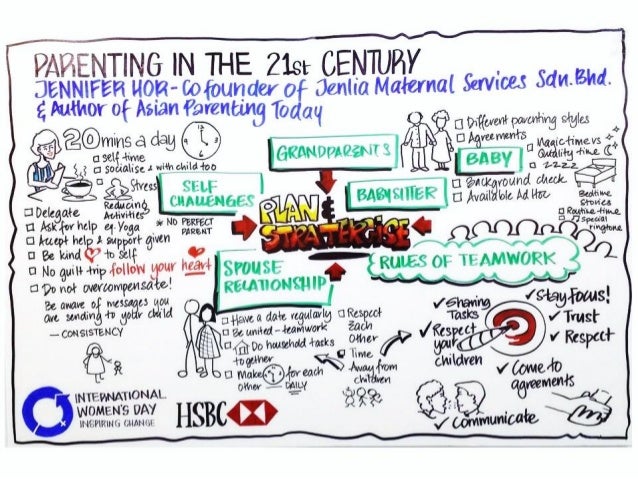 PARENTING IN THE 21st CENTURY
JENNIFER HOR - Co founder of Jenlia Maternal Services Sdn. Bhd.
& Author of Asian Parenting Today
20 mins a day
self-time
socialise & with child too
Stress
Reducing
Activities
eg. Yoga
Delegate
Ask for help
Accept help & support given
Be kind to self
No guilt trip follow your heart
Do not overcompensate!
Be aware of messages you
are sending to your child
— CONSISTENCY
* NO PERFECT
PARENT
SELF
CHALLENGES
GRANDPARENTS
Different parenting styles
Agreements
BABY
Magic time vs
Quality time
zzzz
Bedtime
Stories
Routine-time
Special
ringtone
BABYSITTER
Background check
Available Ad Hoc
PLAN &
STRATERGISE
SPOUSE
RELATIONSHIP
Have a date regularly
Be united - teamwork
Do household tasks
together
Make for each
other DAILY
Respect
Each
Other
Time
Away from
children
RULES OF TEAMWORK
Sharing
Tasks
Respect
your
children
Stay focus!
Trust
Respect
Come to
agreements
Communicate
INTERNATIONAL
WOMEN'S DAY
INSPIRING CHANGE
HSBC